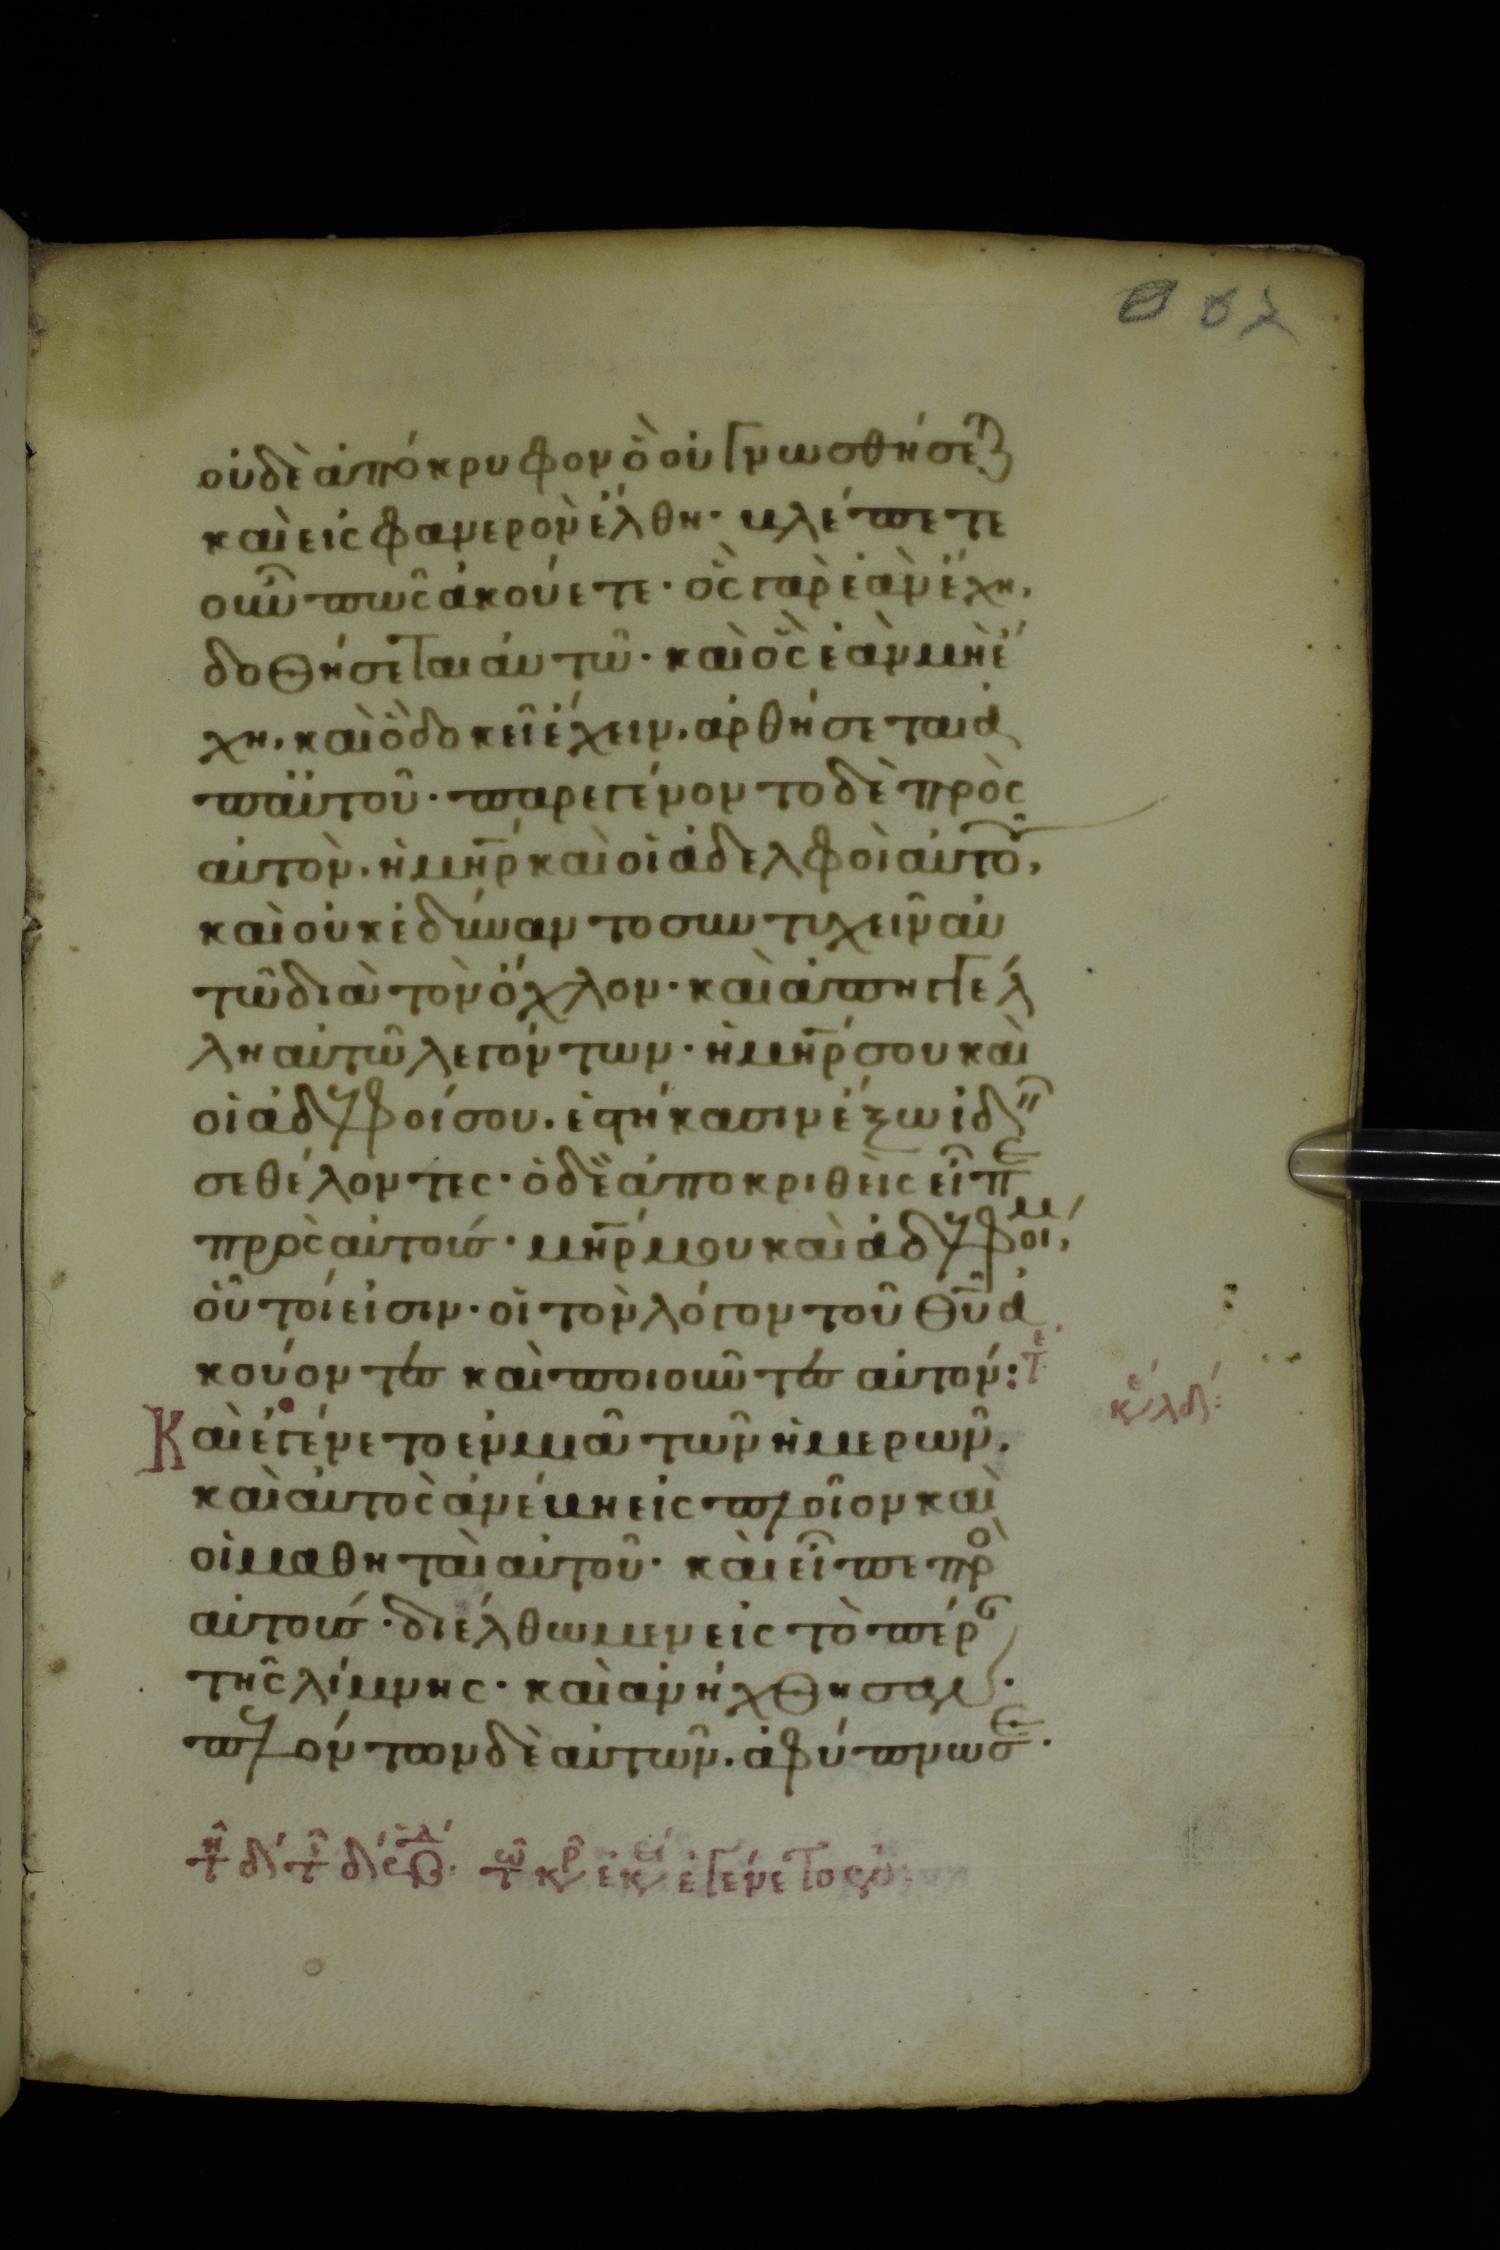 οὐδὲ ἀπόκρυφον ὃ οὐ γνωσθήσεται
καὶ εἰς φανερὸν ἔλθη· βλέπετε
οὖν πῶς ἀκούετε· ὃς γὰρ ἐὰν ἔχη,
δοθήσεται αὐτῶ· καὶ ὃς ἐὰν μὴ ἔ
χη, καὶ ὃ δοκεῖ ἔχειν, ἀρθήσεται ἀ
π αὐτοῦ· παρεγένοντο δὲ πρὸς
αὐτὸν, ἡ μηρ καὶ οἱ ἀδελφοὶ αὐτοῦ,
καὶ οὐκ ἐδύναντο συντυχεῖν αὐ
τῶ διὰ τὸν ὄχλον· καὶ ἀπηγγέλ
λη αὐτῶ λεγόντων· ἡ μηρ σου καὶ
οἱ ἀδελφοί σου, ἑστήκασιν ἔξω ἰδεῖν
σε θέλοντες· ὁ δὲ ἀποκριθεὶς εἶπε
πρὸς αὐτούς· μηρ μου καὶ ἀδελφοί μ,
οὗτοί εἰσιν· οἱ τὸν λόγον τοῦ θυ ἀ
κούοντες καὶ ποιοῦντες αὐτόν: τε
Καὶ ἐγένετο ἐν μιᾶ τῶν ἡμερῶν,
καὶ αὐτὸς ἀνέβη εἰς πλοῖον καὶ
οἱ μαθηταὶ αὐτοῦ· καὶ εἶπε προς
αὐτούς· διέλθωμεν εἰς τὸ πέραν
τῆς λίμνης· καὶ ἀνήχθησαν·
πλεόντων δὲ αὐτῶν, ἀφύπνωσε·